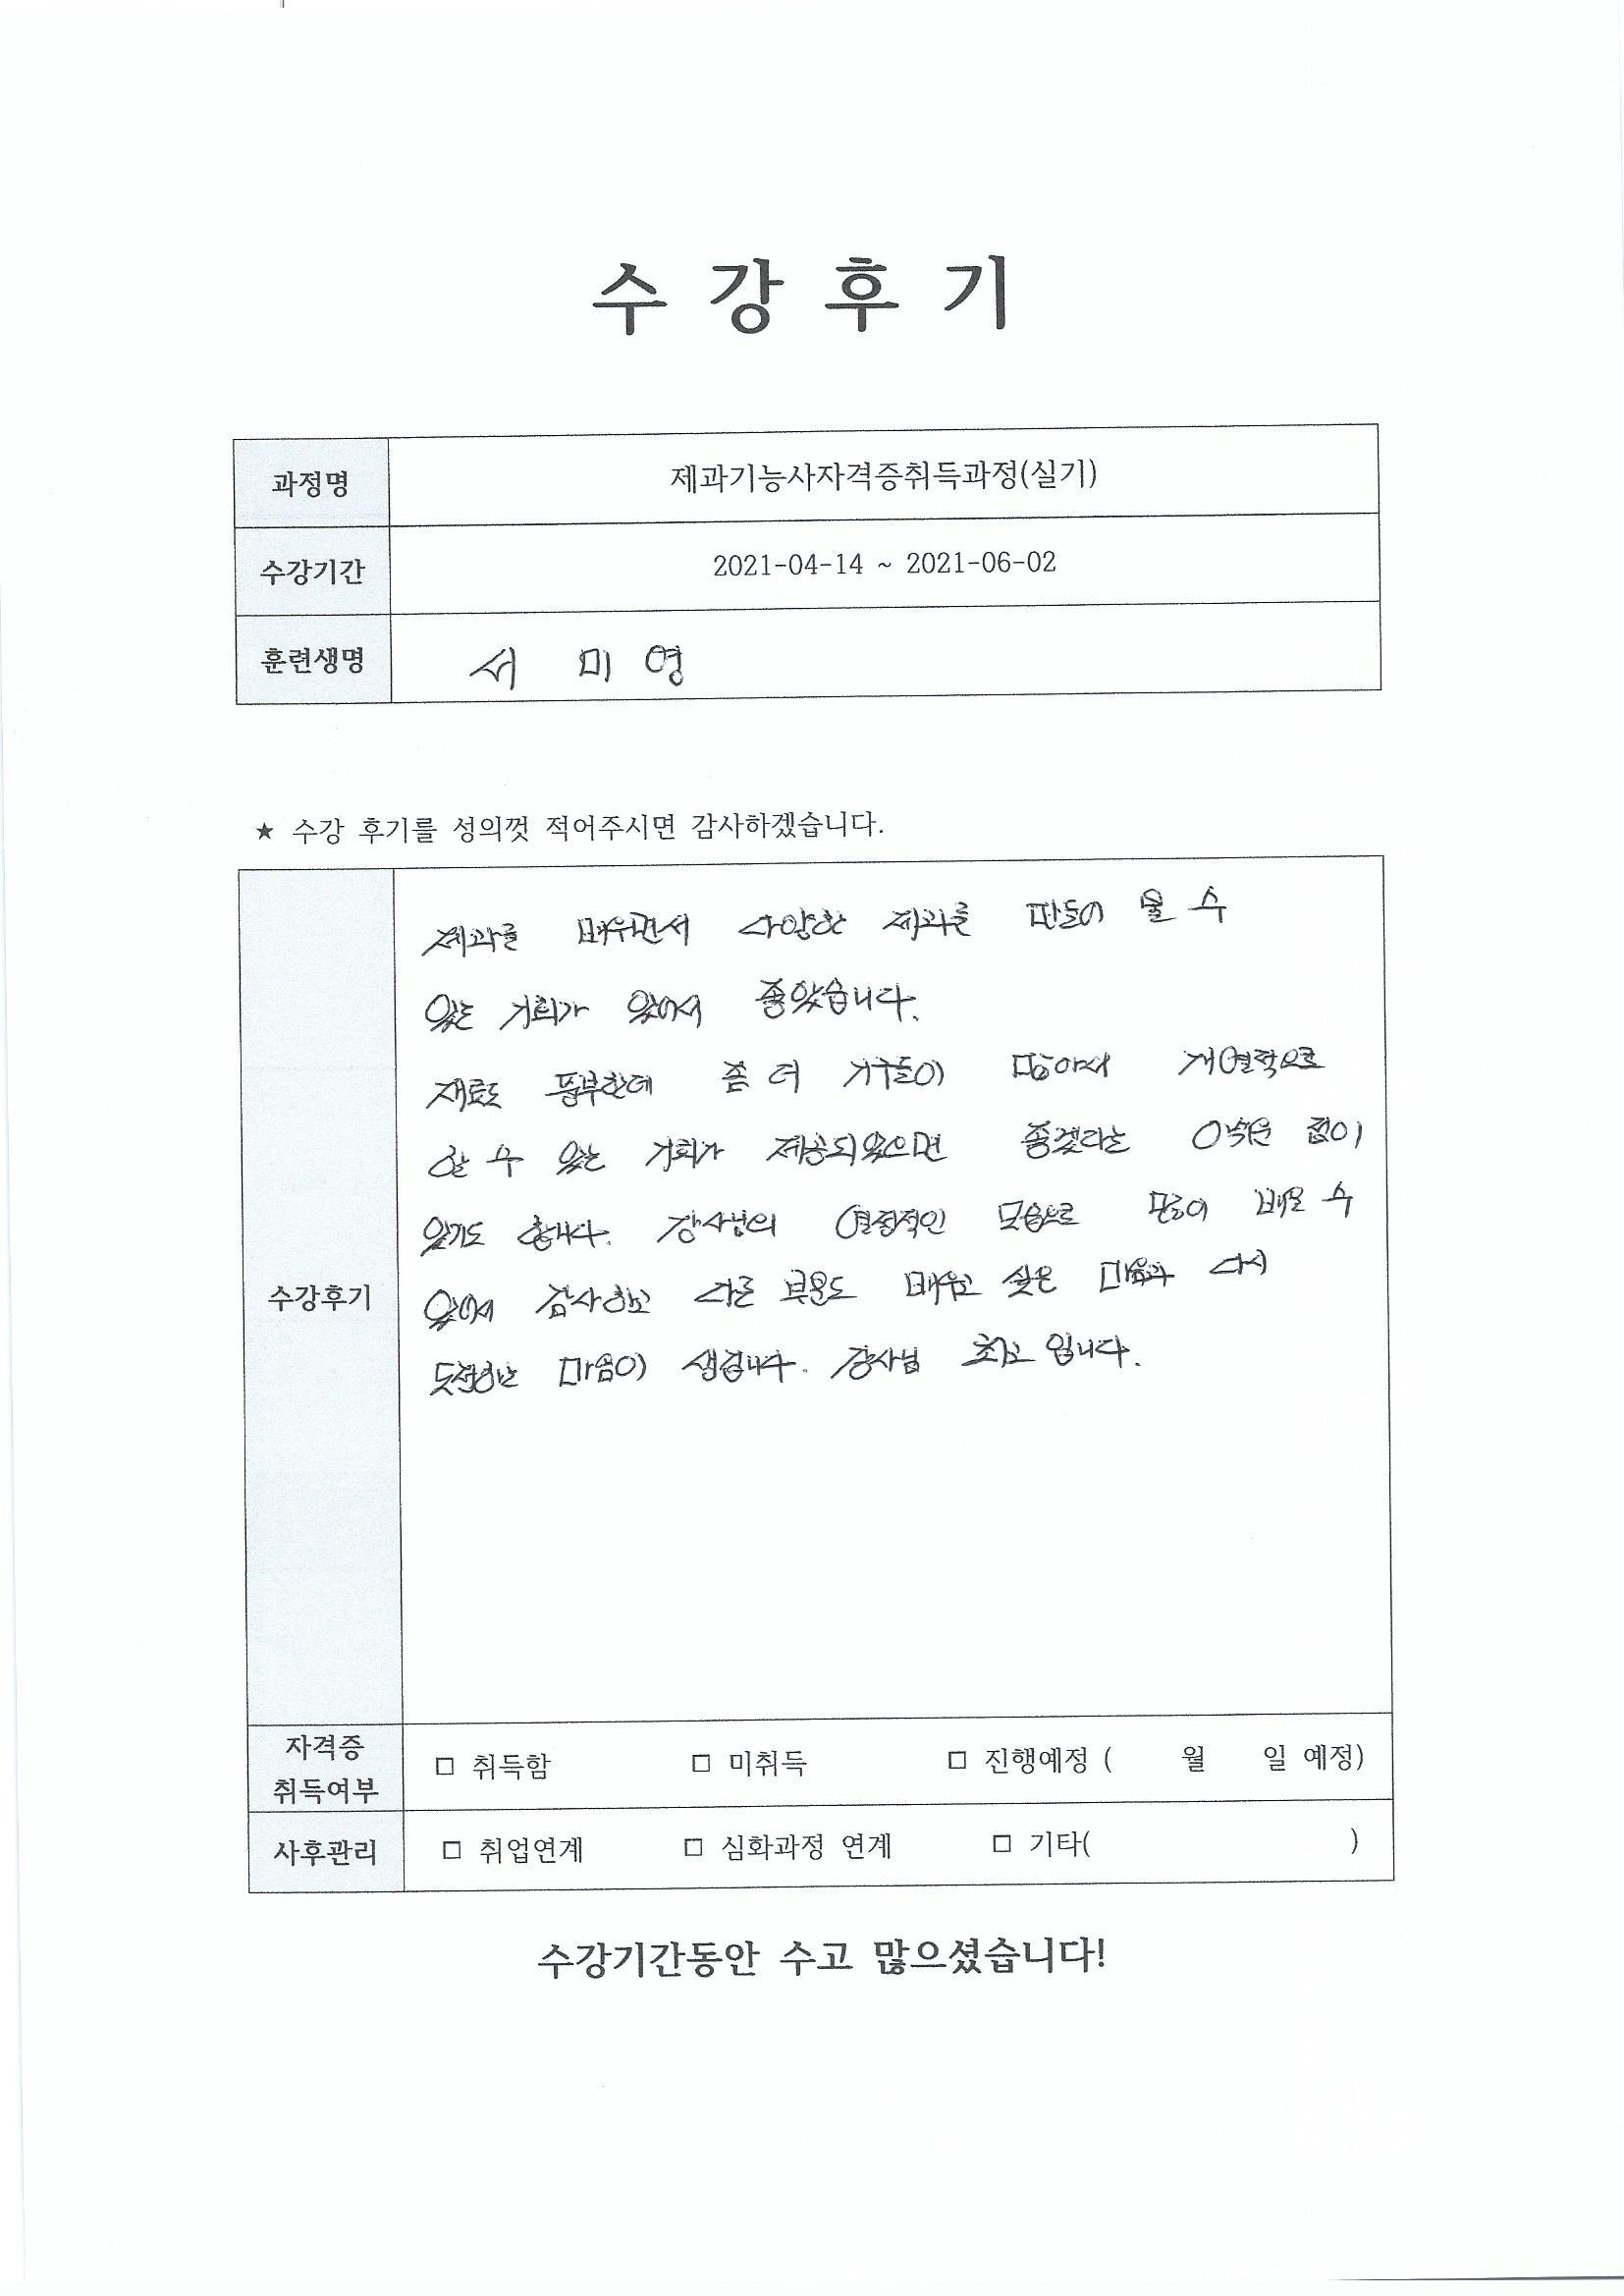 수 강 후 기
과정명 제과기능사자격증취득과정(실기)
수강기간 2021-04-14 ~ 2021-06-02
훈련생명 서 미 영
★ 수강 후기를 성의껏 적어주시면 감사하겠습니다.
수강후기
제과를 배우면서 다양한 제과를 만들어 볼 수
있는 기회가 있어서 좋았습니다.
재료도 풍부한데 좀 더 기구들이 많아서 개별적으로
할 수 있는 기회가 제공되었으면 좋겠다는 아쉬운 점이
있기도 합니다. 강사님의 열정적인 모습으로 많이 배울 수
있어서 감사하고 다른 부분도 배우고 싶은 마음과 다시
도전하는 마음이 생깁니다. 강사님 최고 입니다.
자격증
취득여부 □ 취득함 □ 미취득 □ 진행예정 ( 월 일 예정)
사후관리 □ 취업연계 □ 심화과정 연계 □ 기타( )
수강기간동안 수고 많으셨습니다!